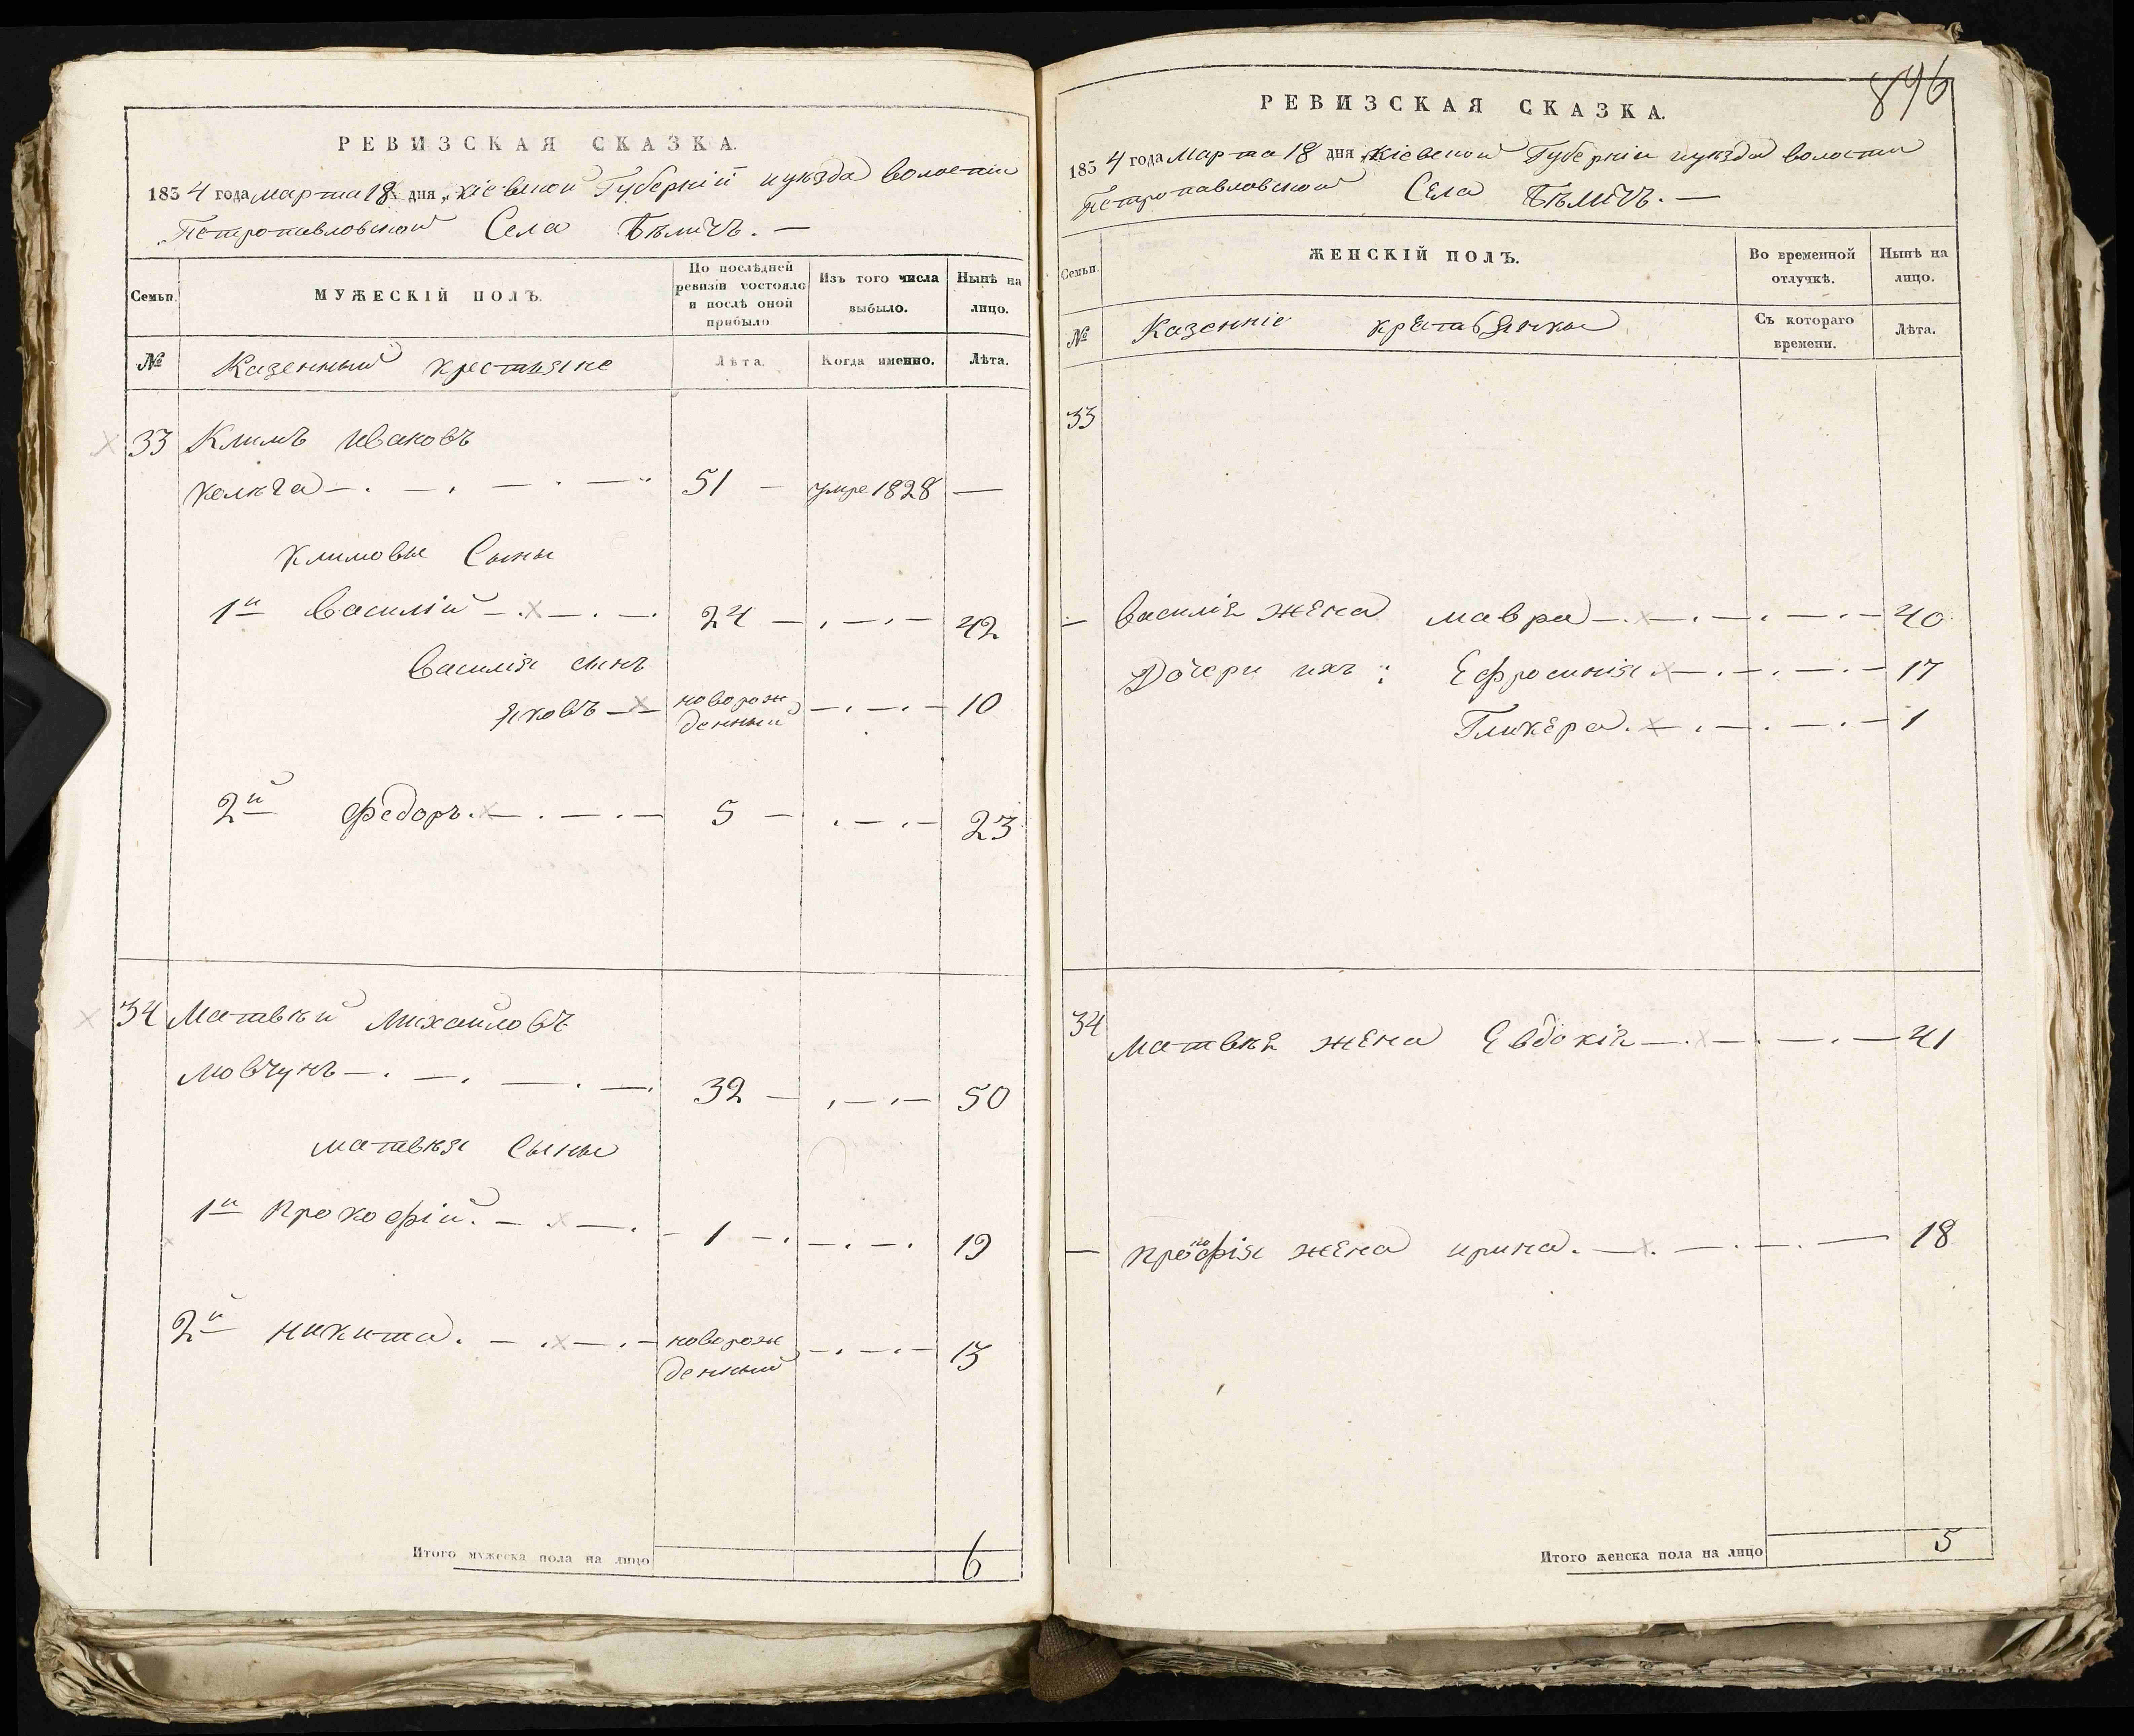 РЕВИЗСКАЯ СКАЗКА.
1834 года марта 18 дня, Кіевской Губерніи и уѣзда волости
Петропавловской Села Бѣличъ. —
Семьи.
МУЖЕСКІЙ ПОЛЪ.
По послѣдней ревизіи состояло и послѣ оной прибыло
Изъ того числа выбыло.
Нынѣ на лицо.
№
Казенныи крестьяне
Лѣта.
Когда именно.
Лѣта.
33 Климъ Ивановъ
51 — умре 1828 —
Климовы Сыны
1й Василій 24 42
Василія сынъ
Яковъ новорож денный 10
2й Федоръ 5 23
34 Матвѣй Михайловъ
Мовчунъ 32 50
Матвѣя Сыны
1й Прокофій 1 19
2й Никита новорож денный 13
Итого мужеска пола на лицо 6
896
РЕВИЗСКАЯ СКАЗКА.
1834 года Марта 18 дня, Кіевской Губерніи и уѣзда волости
Петропавловской Села Бѣличъ. —
Семьи.
ЖЕНСКІЙ ПОЛЪ.
Во временной отлучкѣ.
Нынѣ на лицо.
№
Казенніе крестьянки
Съ котораго времени.
Лѣта.
33
Василія жена Мавра 40
Дочери ихъ: Ефросинія 17
Гликера 1
34
Матвѣя жена Евдокія 41
Прокофія жена Ирина 18
Итого женска пола на лицо 5